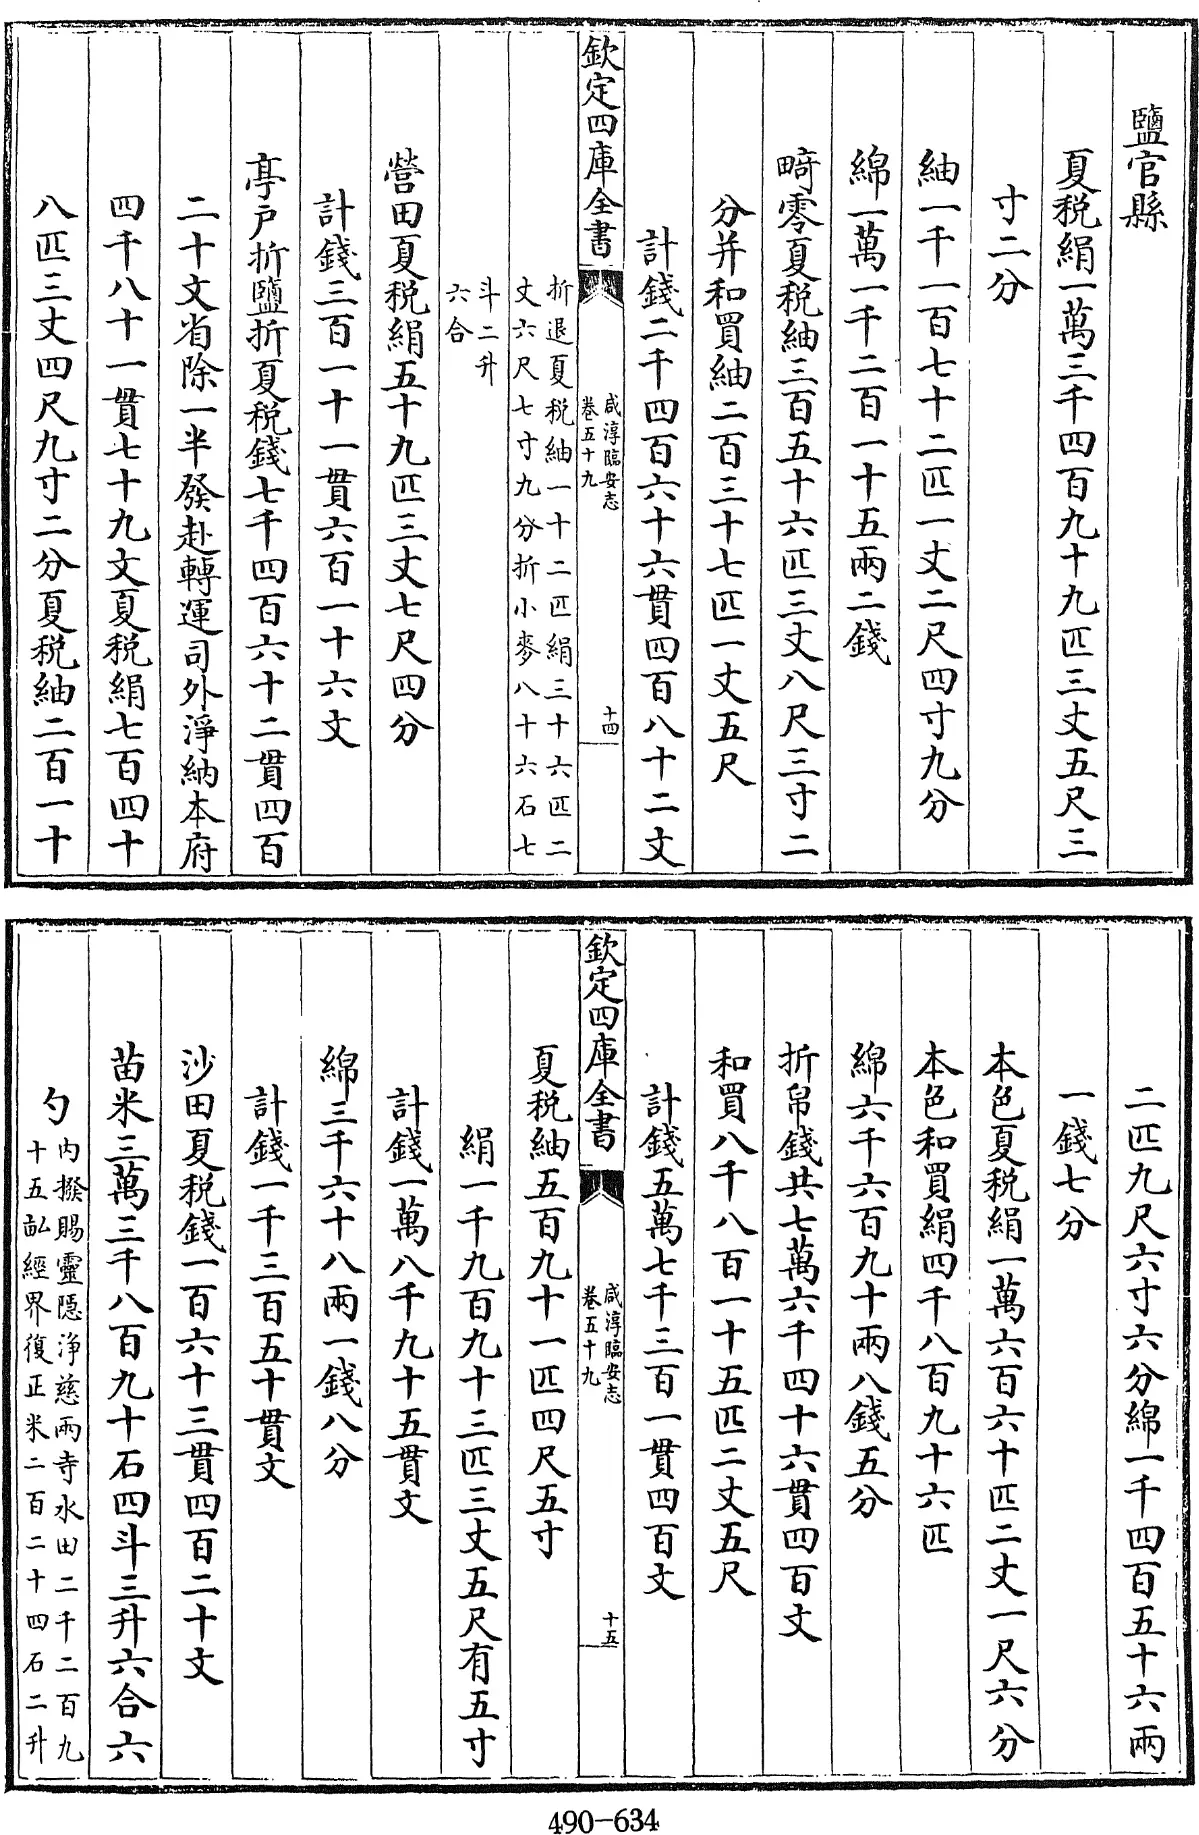 鹽官縣
夏税絹一萬三千四百九十九匹三丈五尺三
寸二分
紬一千一百七十二匹一丈二尺四寸九分
綿一萬一千二百一十五兩二錢
畸零夏税紬三百五十六匹三丈八尺三寸二
分并和買紬二百三十七匹一丈五尺
計錢二千四百六十六貫四百八十二文
欽定四庫全書
咸淳臨安志
卷五十九
十四
折退夏税紬一十二匹絹三十六匹二
丈六尺七寸九分折小麥八十六石七
斗二升
六合
營田夏税絹五十九匹三丈七尺四分
計錢三百一十一貫六百一十六文
亭户折鹽折夏税錢七千四百六十二貫四百
二十文省除一半發赴轉運司外淨納本府
四千八十一貫七十九文夏税絹七百四十
八匹三丈四尺九寸二分夏税紬二百一十
二匹九尺六寸六分綿一千四百五十六兩
一錢七分
本色夏税絹一萬六百六十匹二丈一尺六分
本色和買絹四千八百九十六匹
綿六千六百九十兩八錢五分
折帛錢共七萬六千四十六貫四百文
和買八千八百一十五匹二丈五尺
計錢五萬七千三百一貫四百文
欽定四庫全書
咸淳臨安志
卷五十九
十五
夏税紬五百九十一匹四尺五寸
絹一千九百九十三匹三丈五尺有五寸
計錢一萬八千九十五貫文
綿三千六十八兩一錢八分
計錢一千三百五十貫文
沙田夏税錢一百六十三貫四百二十文
苗米三萬三千八百九十石四斗三升六合六
勺
内撥賜靈隱浄慈兩寺水田二千二百九
十五畝經界復正米二百二十四石二升
490-634